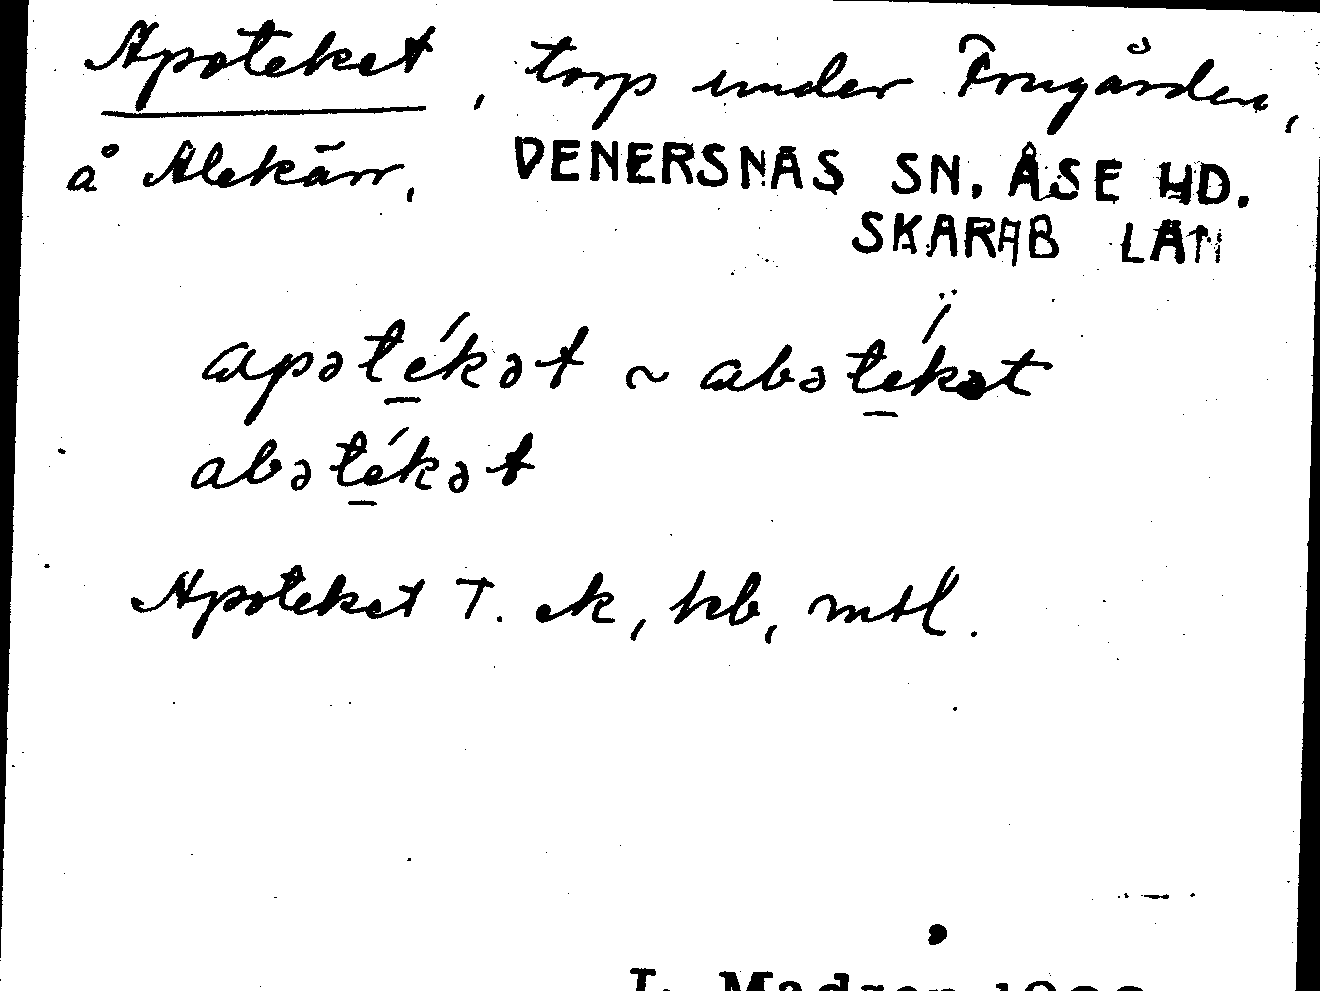 Apoteket, torp under Frugården,
å Alekärr, VENERSNÄS SN. ÅSE HD.
SKARAB LÄN
apətékət ~ abətékət
abətékət
Apoteket T. ek, kb, mtl.